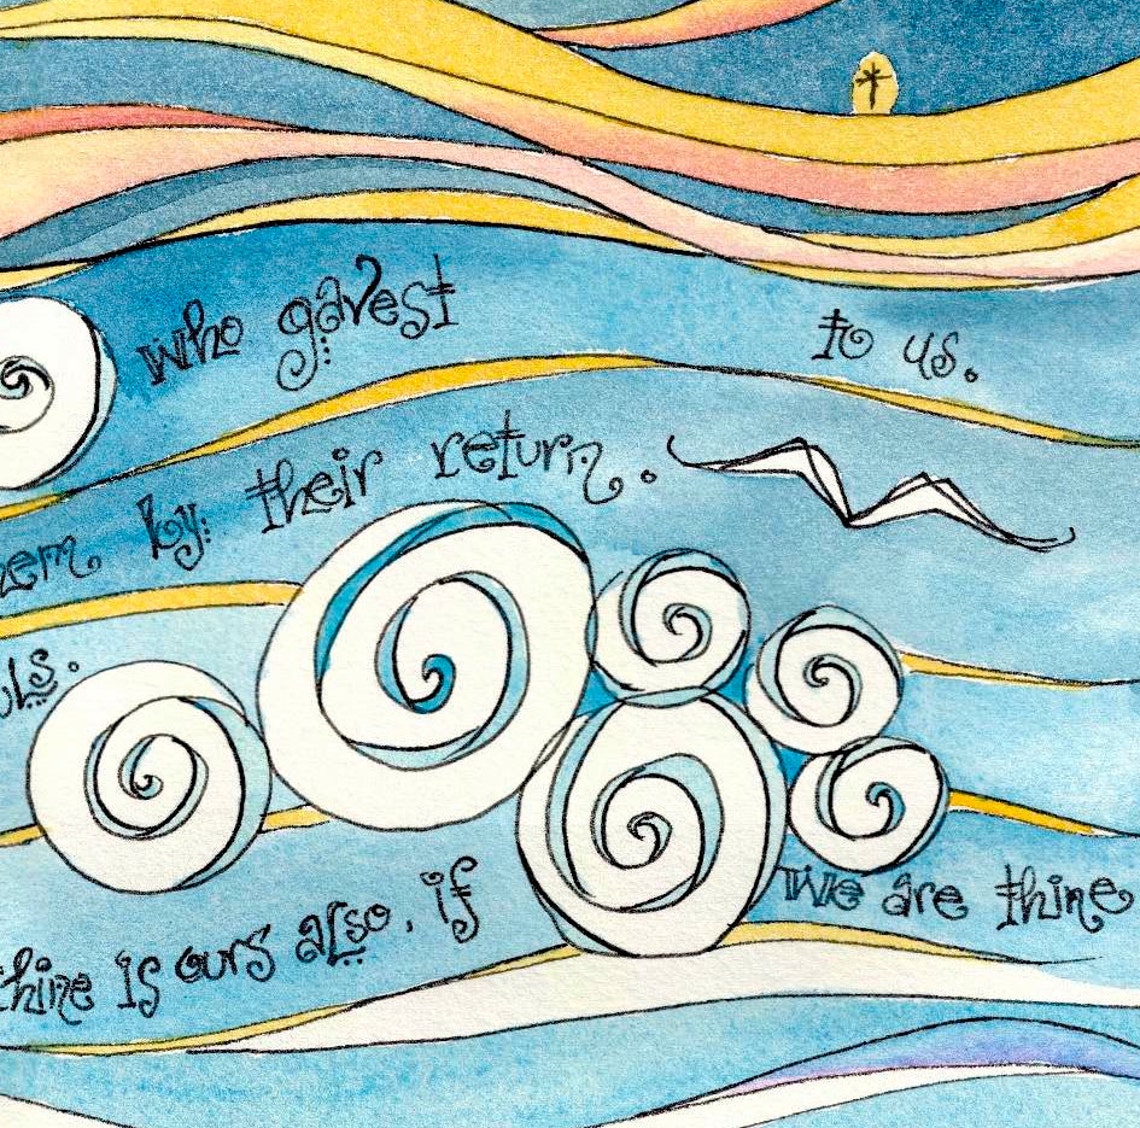 who gavest to us.
hem by their return.
uls.
thine is ours also, if we are thine